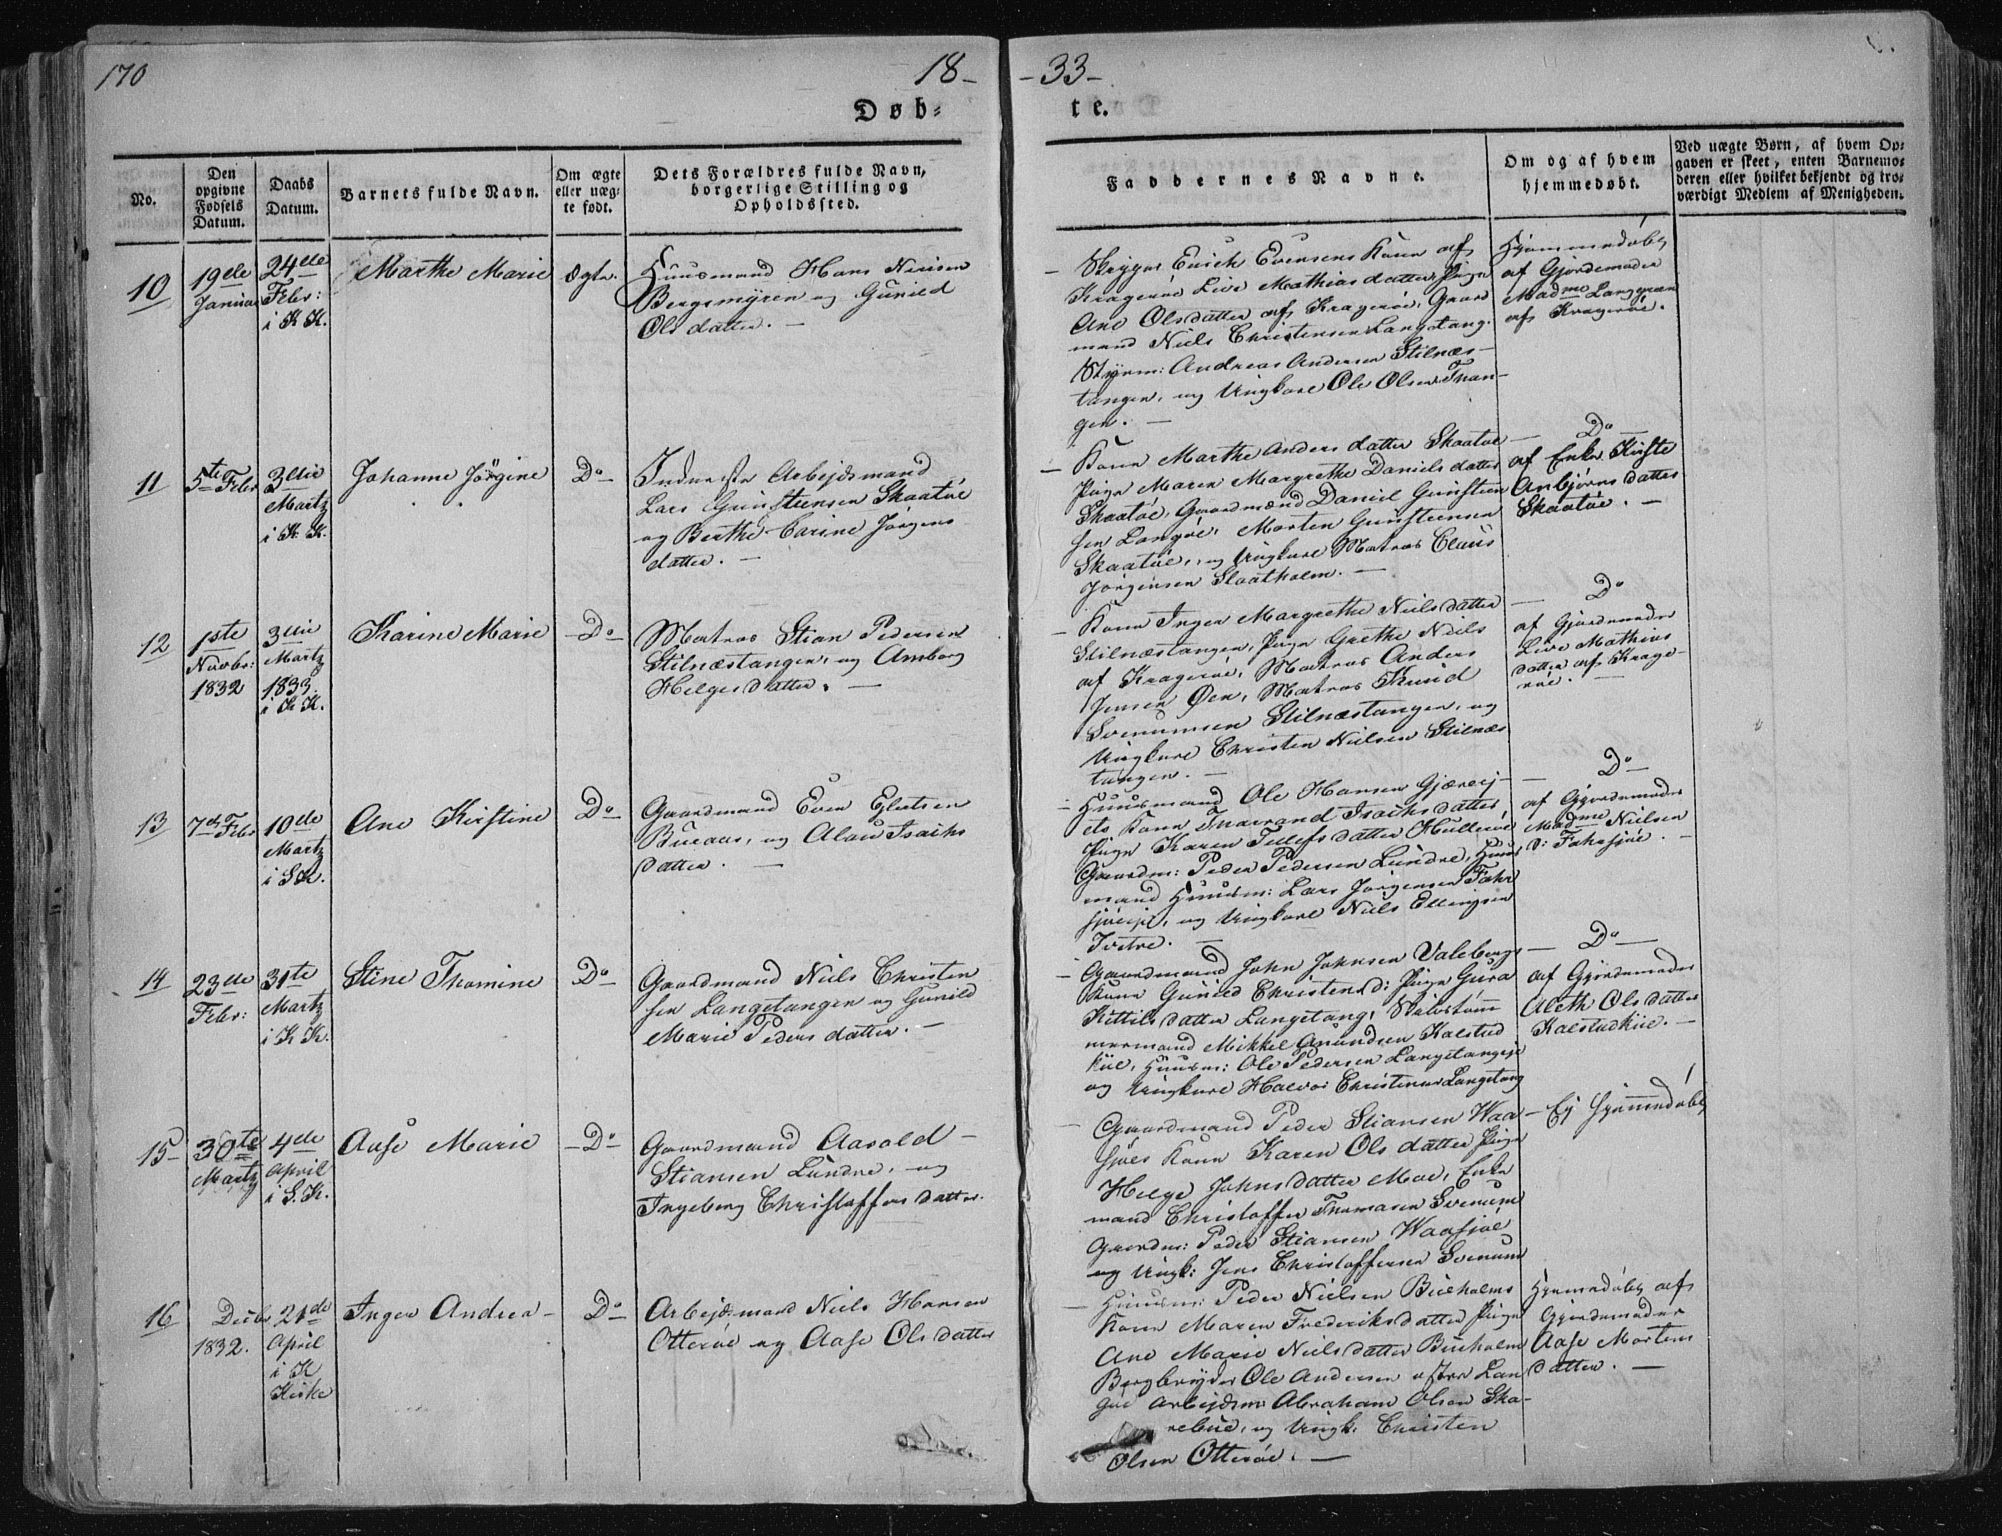 170
18- -33-
Døb- te.
No.
Den
opgivne
Fødsels
Datum.
Daabs
Datum.
Barnets fulde Navn.
Om ægte
eller uæg-
te født.
Dets Forældres fulde Navn,
borgerlige Stilling og
Opholdssted.
Faddernes Navne.
Om og af hvem
hjemmedøbt.
Ved uægte Børn, af hvem Op-
gaven er skeet, enten Barnemo-
deren eller hvilket bekjendt og tro-
værdigt Medlem af Menigheden.
10
19de
Januar
24de
Febr:
i K K.
Marthe Marie
Ægte.
Huusmand Hans Nielsen
Bergsmyren og Gunild
Ols datter. —
— Skipper Erich Evensens Kone af
Kragerøe Live Mathias datter, Pige
Ane Olsdatter af Kragerøe, Gaard
mand Niels Christensen Langetang.
Styrm: Andreas Andersen Stilnæs-
tangen, og Ungkarl Ole Olsen Than-
gen. —
Hjemmedøbt
af Gjordemoder
Madme Langeman
af Kragerøe.
11
5te Febr
3die
Martz
i K K.
Johanne Jörgine
Do
Inderste Arbejdsmand
Lars Gunsteensen Skaatöe
og Berthe Carine Jörgens
datter. —
— Kone Marthe Anders datter Skaatöe
Pige Maren Margrethe Daniels datter
Skaatöe, Gaardmænd Daniel Gunsteen
sen Langöe, Morten Gunsteensen
Skaatöe, og Ungkarl Matros Claus
Jörgensen Slaatholm. —
— Do —
af Enke Kirste
Anbjörns datter
Skaatöe. —
12
1ste
Novbr:
1832
3die
Martz
1833.
i K K.
Karine Marie
Do
Matros Stian Pedersen
Stilnæstangen, og Amborg
Helges datter. —
— Kone Inger Margrethe Niels datter
Stilnæstangen, Pige Grethe Niels
af Kragerøe, Matros Anders
Jensen Øen, Matros Knud
Svenumsen Stilnæstangen, og
Ungkarl Christen Nielsen Stilnæs
tangen. —
— Do
af Gjordemoder
Live Mathias
datter af Krage-
røe. —
13
7de Febr
10de
Martz
i S K.
Ane Kirstine
Do
Gaardmand Even Eliesen
Bueaas, og Alau Isachs
datter. —
— Huusmand Ole Hansen Gjærvej-
ets Kone Thorrand Isachs datter,
Pige Karen Tellefs datter Hulleröe
Gaardm: Peder Pedersen Lundre, Huus
mand Huusm: Lars Jörgensen Fahr
sjöeje, og Ungkarl Niels Ellingsen
Tvetre. —
— Do —
af Gjordemoder
Madme Nielsen
d: Fahrsjöe. —
14
23de
Febr:
31te
Martz
i K K.
Stine Thomine
Do
Gaardmand Niels Christen
sen Langetangen og Gunild
Marie Peders datter. —
— Gaardmand John Johnsen Valebergs
Kone Gunild Christensd: Pige Gura
Kittils datter Langetang, Skibstöm
mermand Mikkel Amundsen Kalstad
kiil, Huusm: Ole Pedersen Langetangeje
og Ungkarl Halvor Christensen Langetang
— Do —
af Gjordemoder
Aleth Ols datter
Kalstadkiil. —
15
30te
Martz
4de
April
i S. K.
Aase Marie
Do
Gaardmand Aasold
Stiansen Lundre, og
Ingeborg Christoffers datter.
— Gaardmand Peder Stiansen Waa
sjöes Kone Karen Ols datter Pige
Helge Johns datter Moe, Enke
mand Christoffer Thomasen Svenum
Gaardm: Peder Stiansen Waasjöe
og Ungk: Jens Christoffersen Svenum
— Ej hjemmedøbt
16
Decbr
1832.
21de
April
i K
Kirke
Inger Andrea
Do
Arbejdsmand Niels Hansen
Otteröe og Aase Ols datter
— Huusm: Peder Nielsen Bueholms
Kone Maren Frederiks datter Pige
Ane Marie Niels datter Bueholm
Bergbryder Ole Andersen østre Lan
göe Arbejdsm: Abraham Olsen Ska-
rebue, og Ungk: Christen
Olsen Otteröe. —
Hjemmedøbt af
Gjordemoder
Aase Mortens
datter. —